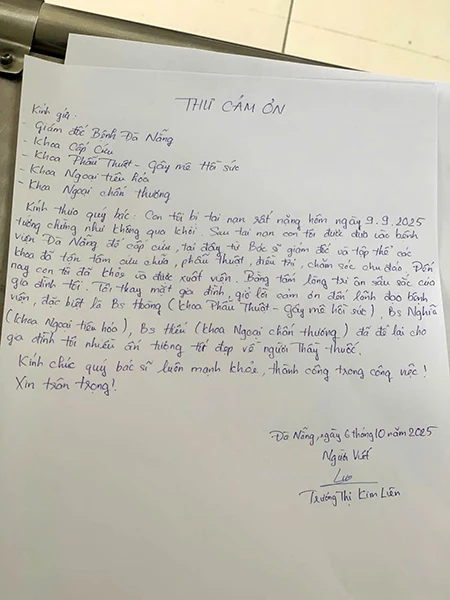 THƯ CẢM ƠN
Kính gửi:
- Giám đốc Bệnh Đà Nẵng
- Khoa Cấp Cứu
- Khoa Phẩu Thuật - Gây mê Hồi sức
- Khoa Ngoại tiêu hóa
- Khoa Ngoại chấn thương
Kính thưa quý bác: Con tôi bị tai nạn rất nặng hôm ngày 9.9.2025
tưởng chừng như không qua khỏi. Sau tai nạn con tôi được đưa vào bệnh
viện Đà Nẵng để cấp cứu, tại đây từ Bác sĩ giám đốc và tập thể các
khoa đã tận tâm cứu chữa, phẩu thuật, điều trị, chăm sóc chu đáo, Đến
nay con tôi đã khỏe và được xuất viện. Bằng tấm lòng tri ân sâu sắc của
gia đình tôi. Tôi thay mặt gia đình, gửi lời cảm ơn đến lãnh đạo bệnh
viện, đặc biệt là Bs Hoàng (Khoa Phẩu Thuật - Gây mê hồi sức), Bs Nghĩa
(Khoa Ngoại tiêu hóa), Bs Hiếu (Khoa Ngoại chấn thương) đã để lại cho
gia đình tôi nhiều ấn tượng tốt đẹp về người Thầy thuốc.
Kính chúc quý bác sĩ luôn mạnh khỏe, thành công trong công việc!
Xin trân trọng!
Đà Nẵng, ngày 6 tháng 10 năm 2025
Người Viết
Trương Thị Kim Liên